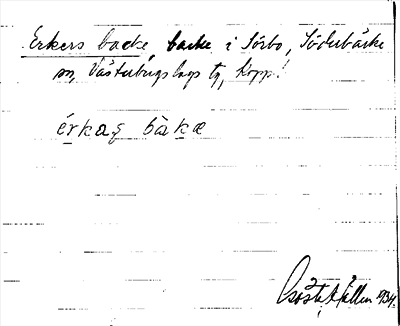 Erkers backe, backe i Sörbo, Söderbärke
sn, Västerbergslags tg, Kopp.
érkaş bàkæ
Gösta Hallen 1934.